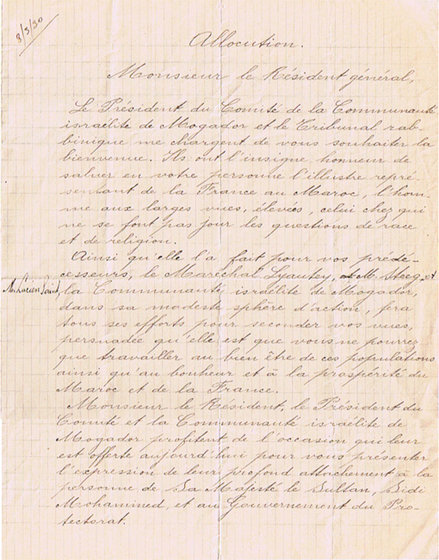 8/3/30
Allocution.
Monsieur le Résident général,
Le Président du Comité de la Communauté
israélite de Mogador et le Tribunal rab-
binique me chargent de vous souhaiter la
bienvenue. Ils ont l'insigne honneur de
saluer en votre personne l'illustre repré
sentant de la France au Maroc, l'hom-
me aux larges vues, élevées, celui chez qui
ne se font pas jour les questions de race
et de religion.
Ainsi qu'elle l'a fait pour vos prédé-
cesseurs, le Maréchal Lyautey, M. Steeg et
M. Lucien Saint,
la Communauté israélite de Mogador,
dans sa modeste sphère d'action, fera
tous ses efforts pour seconder vos vues,
persuadée qu'elle est que vous ne pourrez
que travailler au bien être de ces populations
ainsi qu'au bonheur et à la prospérité du
Maroc et de la France.
Monsieur le Résident, le Président du
Comité et la Communauté israélite de
Mogador profitent de l'occasion qui leur
est offerte aujourd'hui pour vous présenter
l'expression de leur profond attachement à la
personne de Sa Majesté le Sultan, Sidi
Mohammed, et au Gouvernement du Pro-
tectorat.